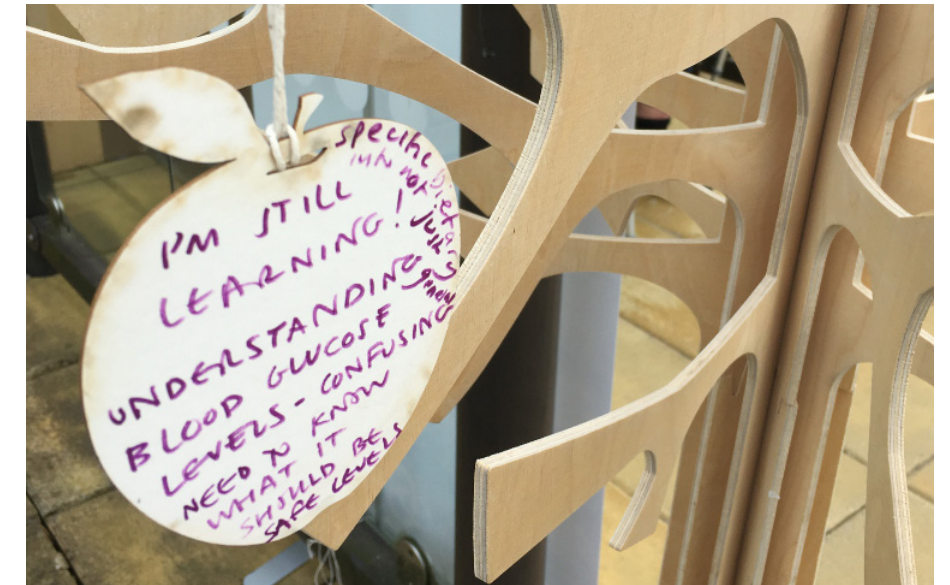 I'M STILL
LEARNING!
UNDERSTANDING
BLOOD GLUCOSE
LEVELS - CONFUSING
NEED TO KNOW
WHAT IT
SHOULD BE
SAFE LEVELS
specific Dietary
info not just